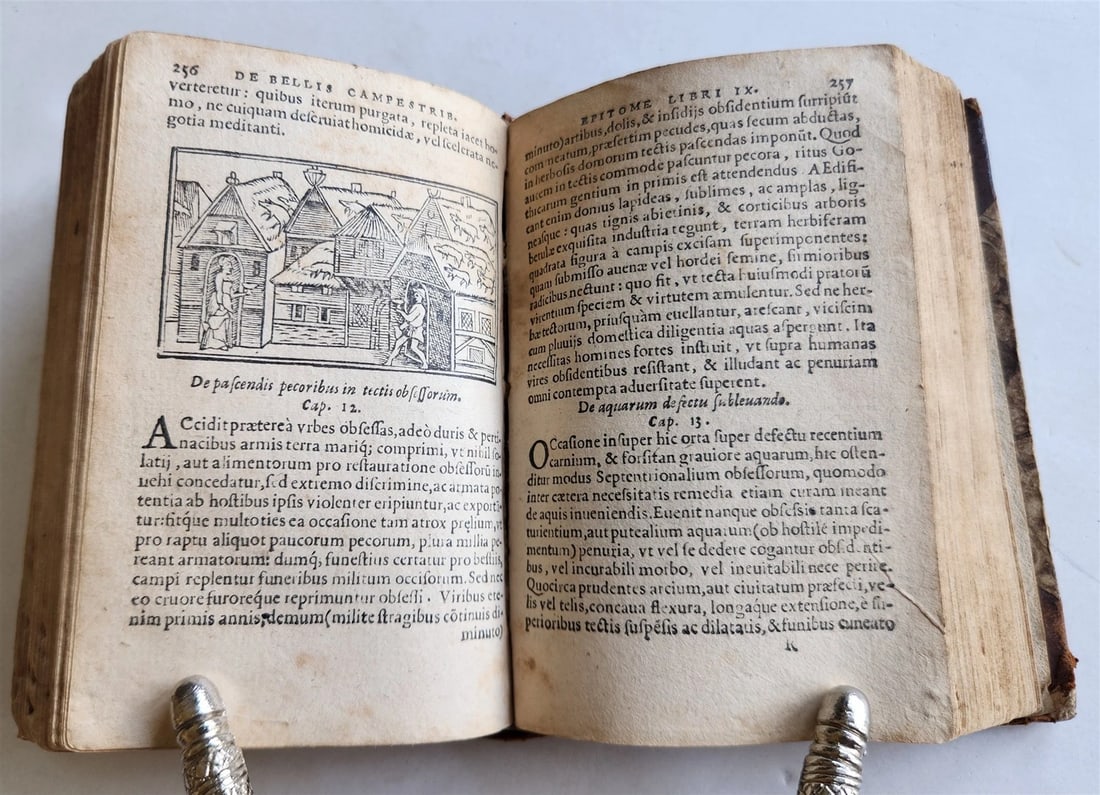 256 DE BELLIS CAMPESTRIB.
verteretur: quibus iterum purgata, repleta iacet ho-
mo, ne cuiquam deseruiat homicidæ, vel scelerata ne-
gotia meditanti.
De pascendis pecoribus in tectis obsessorum.
Cap. 12.
ACcidit prætereà vrbes obsessas, adeò duris & perti-
nacibus armis terra mariq; comprimi, vt nihil so-
latij, aut alimentorum pro restauratione obsessorū in-
uehi concedatur, sed extremo discrimine, ac armata po-
tentia ab hostibus ipsis violenter eripiuntur, ac exporti-
tur: fitque multoties ea occasione tam atrox pręlium, vt
pro raptu aliquot paucorum pecorum, plura millia pe-
reant armatorum: dumq́; funestius certatur pro bestiis,
campi replentur funeribus militum occisorum. Sed nec
eo cruore furoreque reprimuntur obsessi. Viribus ete-
nim primis annis, demum (milite stragibus cōtinuis di-
minuto)
EPITOME LIBRI IX. 257
minuto) artibus, dolis, & insidijs obsidentium surripiūt
commeatum, præsertim pecudes, quas secum abductas,
in herbosis domorum tectis pascendas imponūt. Quod
autem in tectis commode pascuntur pecora, ritus Go-
thicarum gentium in primis est attendendus. AEdifi-
cant enim domus lapideas, sublimes, ac amplas, lig-
neasque: quas tignis abietinis, & corticibus arboris
betulæ exquisita industria tegunt, terram herbiferam
quadrata figura à campis excisam superimponentes:
quam submisso auenæ vel hordei semine, firmioribus
radicibus nectunt: quo fit, vt tecta huiusmodi pratorū
virentium speciem & virtutem æmulentur. Sed ne her-
bæ tectorum, priusquàm euellantur, arescant, vicissim
cum pluuijs domestica diligentia aquas aspergunt. Ita
necessitas homines fortes instruit, vt supra humanas
vires obsidentibus resistant, & illudant ac penuriam
omni contempta aduersitate superent.
De aquarum defectu subleuando.
Cap. 13.
OCcasione insuper hic orta super defectu recentium
carnium, & forsitan grauiore aquarum, hic osten-
ditur modus Septentrionalium obsessorum, quomodo
inter cætera necessitatis remedia etiam curam ineant
de aquis inueniendis. Euenit nanque obsessis tanta sca-
turientium, aut putealium aquarum (ob hostile impedi-
mentum) penuria, vt vel se dedere cogantur obsidenti-
bus, vel incurabili morbo, vel ineuitabili nece perire.
Quocirca prudentes arcium, aut ciuitatum præfecti, ve-
lis vel telis, concaua flexura, longaque extensione, è su-
perioribus tectis suspēsis ac dilatatis, & funibus cuneato
R